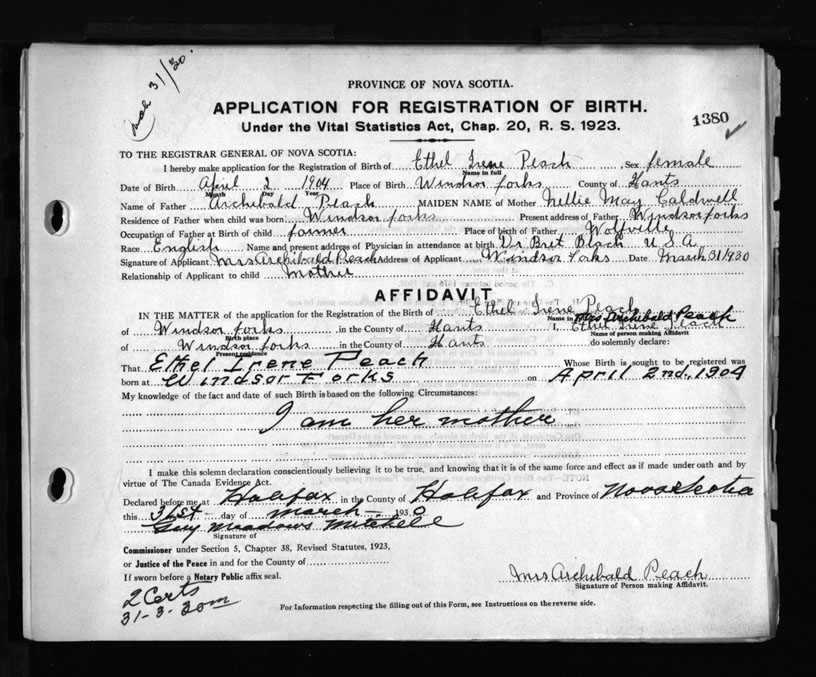 Mch 31/30.
PROVINCE OF NOVA SCOTIA.
APPLICATION FOR REGISTRATION OF BIRTH.
1380
Under the Vital Statistics Act, Chap. 20, R. S. 1923.
TO THE REGISTRAR GENERAL OF NOVA SCOTIA:
I hereby make application for the Registration of Birth of Ethel Irene Peach Sex female
Name in full
Date of Birth April 2 1904 Place of Birth Windsor forks County of Hants
Month Day Year
Name of Father Archibald Peach MAIDEN NAME of Mother Nellie May Caldwell
Residence of Father when child was born: Windsor forks Present address of Father Windsor forks
Occupation of Father at Birth of child farmer Place of birth of Father Wolfville
Race English Name and present address of Physician in attendance at birth Dr Bret Black U.S.A
Signature of Applicant Mrs Archibald Peach Address of Applicant Windsor Forks Date March 31 1930
Relationship of Applicant to child Mother
AFFIDAVIT.
IN THE MATTER of the application for the Registration of the Birth of Ethel Irene Peach
Name in
Mrs Archibald Peach
of Windsor forks in the County of Hants I, Ethel Irene Peach
Birth place Name of person making Affidavit
of Windsor forks in the County of Hants do solemnly declare:
Present residence
That Ethel Irene Peach Whose Birth is sought to be registered was
born at Windsor Forks on April 2nd, 1904
My knowledge of the fact and date of such Birth is based on the following Circumstances:
I am her mother
I make this solemn declaration conscientiously believing it to be true, and knowing that it is of the same force and effect as if made under oath and by
virtue of The Canada Evidence Act.
Declared before me at Halifax in the County of Halifax and Province of Nova Scotia
this 31st day of March 1930
Guy Meadows Mitchell
Signature of
Commissioner under Section 5, Chapter 38, Revised Statutes, 1923,
or Justice of the Peace in and for the County of
If sworn before a Notary Public affix seal.
Mrs Archibald Peach
Signature of Person making Affidavit.
2 Certs
31-3-30m
For Information respecting the filling out of this Form, see Instructions on the reverse side.